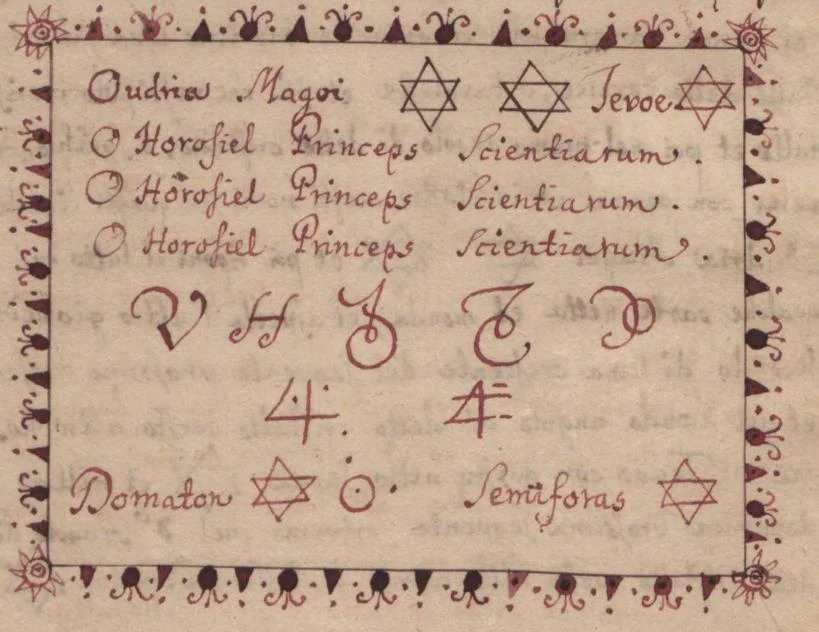 Oudria Magoi ✡ ✡ Ievoe ✡
O Horosiel Princeps Scientiarum,
O Horosiel Princeps Scientiarum
O Horosiel Princeps Scientiarum,
Domaton ✡ O Semiforas ✡